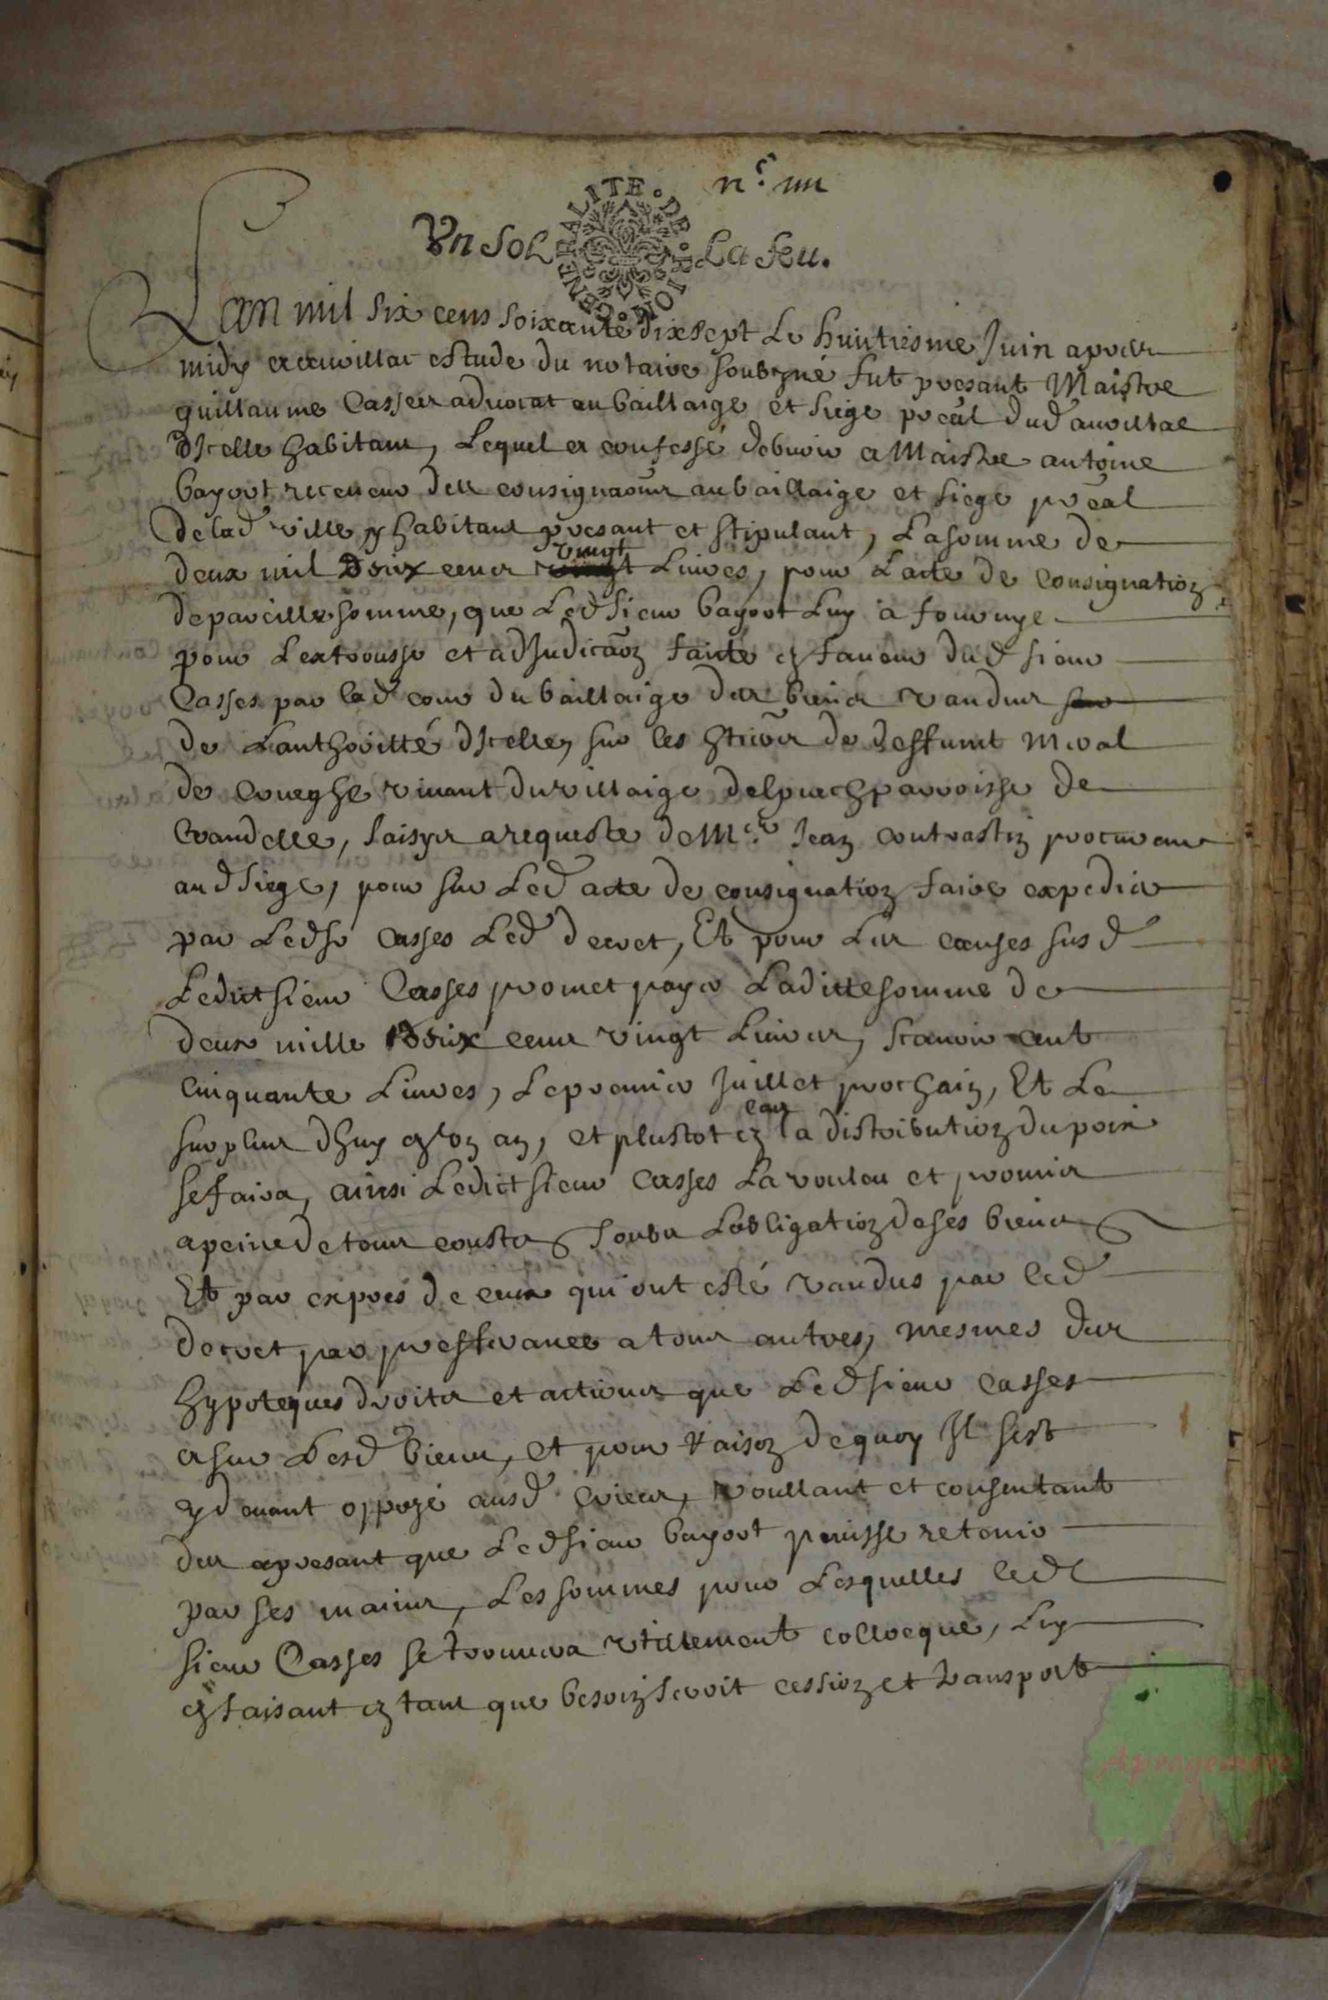 n.º iiii
Un sol GENERALITE. DE. RIOM. La feu.
Lan mil six cens soixante dix sept le huitiesme Juin apres
midy a aurillac estude du notaire soubzné fut presant Maistre
guillaume Casses advocat au baillaige et siege preal dud aurillac
dicelle habitant, Lequel a confessé debvoir a Maistre antoine
bayort receveur des consignaons au baillaige et siege preal
de lad ville y habitant presant et stipulant, La somme de
deux mil deux cens vingt Livres, pour Lacte de consignation
de pareille somme, que Led sieur bayort Luy a fourny
pour Lextrousse et adjudicaon faite en faveur dud sieur
Casses par lad cour du baillaige des biens vandus
de Lauthoritté dicelle, sur les de deffunt
de vivant du villaige delpuech parroisse de
Crandelle, saisys a requeste de Me. Jean contrastin procureur
aud siege, pour sur Led acte de consignation faire expedier
par Led sr Casses Led decret, Et pour Les causes susd
Ledict sieur Casses promet payer Laditte somme de
deux mille deux cens vingt Livres, scavoir cent
cinquante Livres, Le premier Juillet prochain, Et Le
surplus dhuy en un an, et plustot en cas la distribution du prix
se faira, ainsi Ledict sieur Casses La voulcu et promis
a peine de tous coustz soubz Lobligation de ses biens
Et par expres de ceux qui ont esté vandus par led
decret par prefferance a tous autres, mesmes des
hypoteques droitz et actions que Led sieur Casses
a sur Lesd biens, et pour raison de quoy Il sest
cy devant oppozé ausd criees, voullant et consentant
des a presant que Led sieur bayort puisse retenir
par ses mains, Les sommes pour Lesquelles led
sieur Casses se trouvera utillement collocqué, Luy
en faisant en tant que besoin seroit cession et transport
Aprogemere